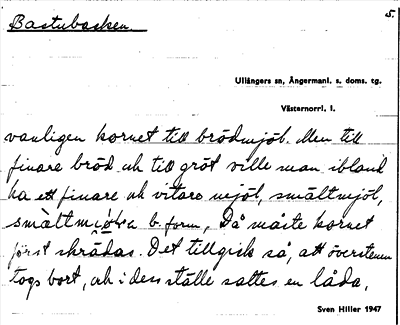 Bastubacken.
5.
Ullångers sn, Ångermanl. s. doms. tg.
Västernorrl. l.
vanligen kornet till brödmjöl. Men till
finare bröd och till gröt ville man ibland
ha ett finare och vitare mjöl, smältmjöl,
b. form, Då måste kornet
först skrädas. Det tillgick så, att överstenen
togs bort, och i dess ställe sattes en låda,
Sven Hiller 1947